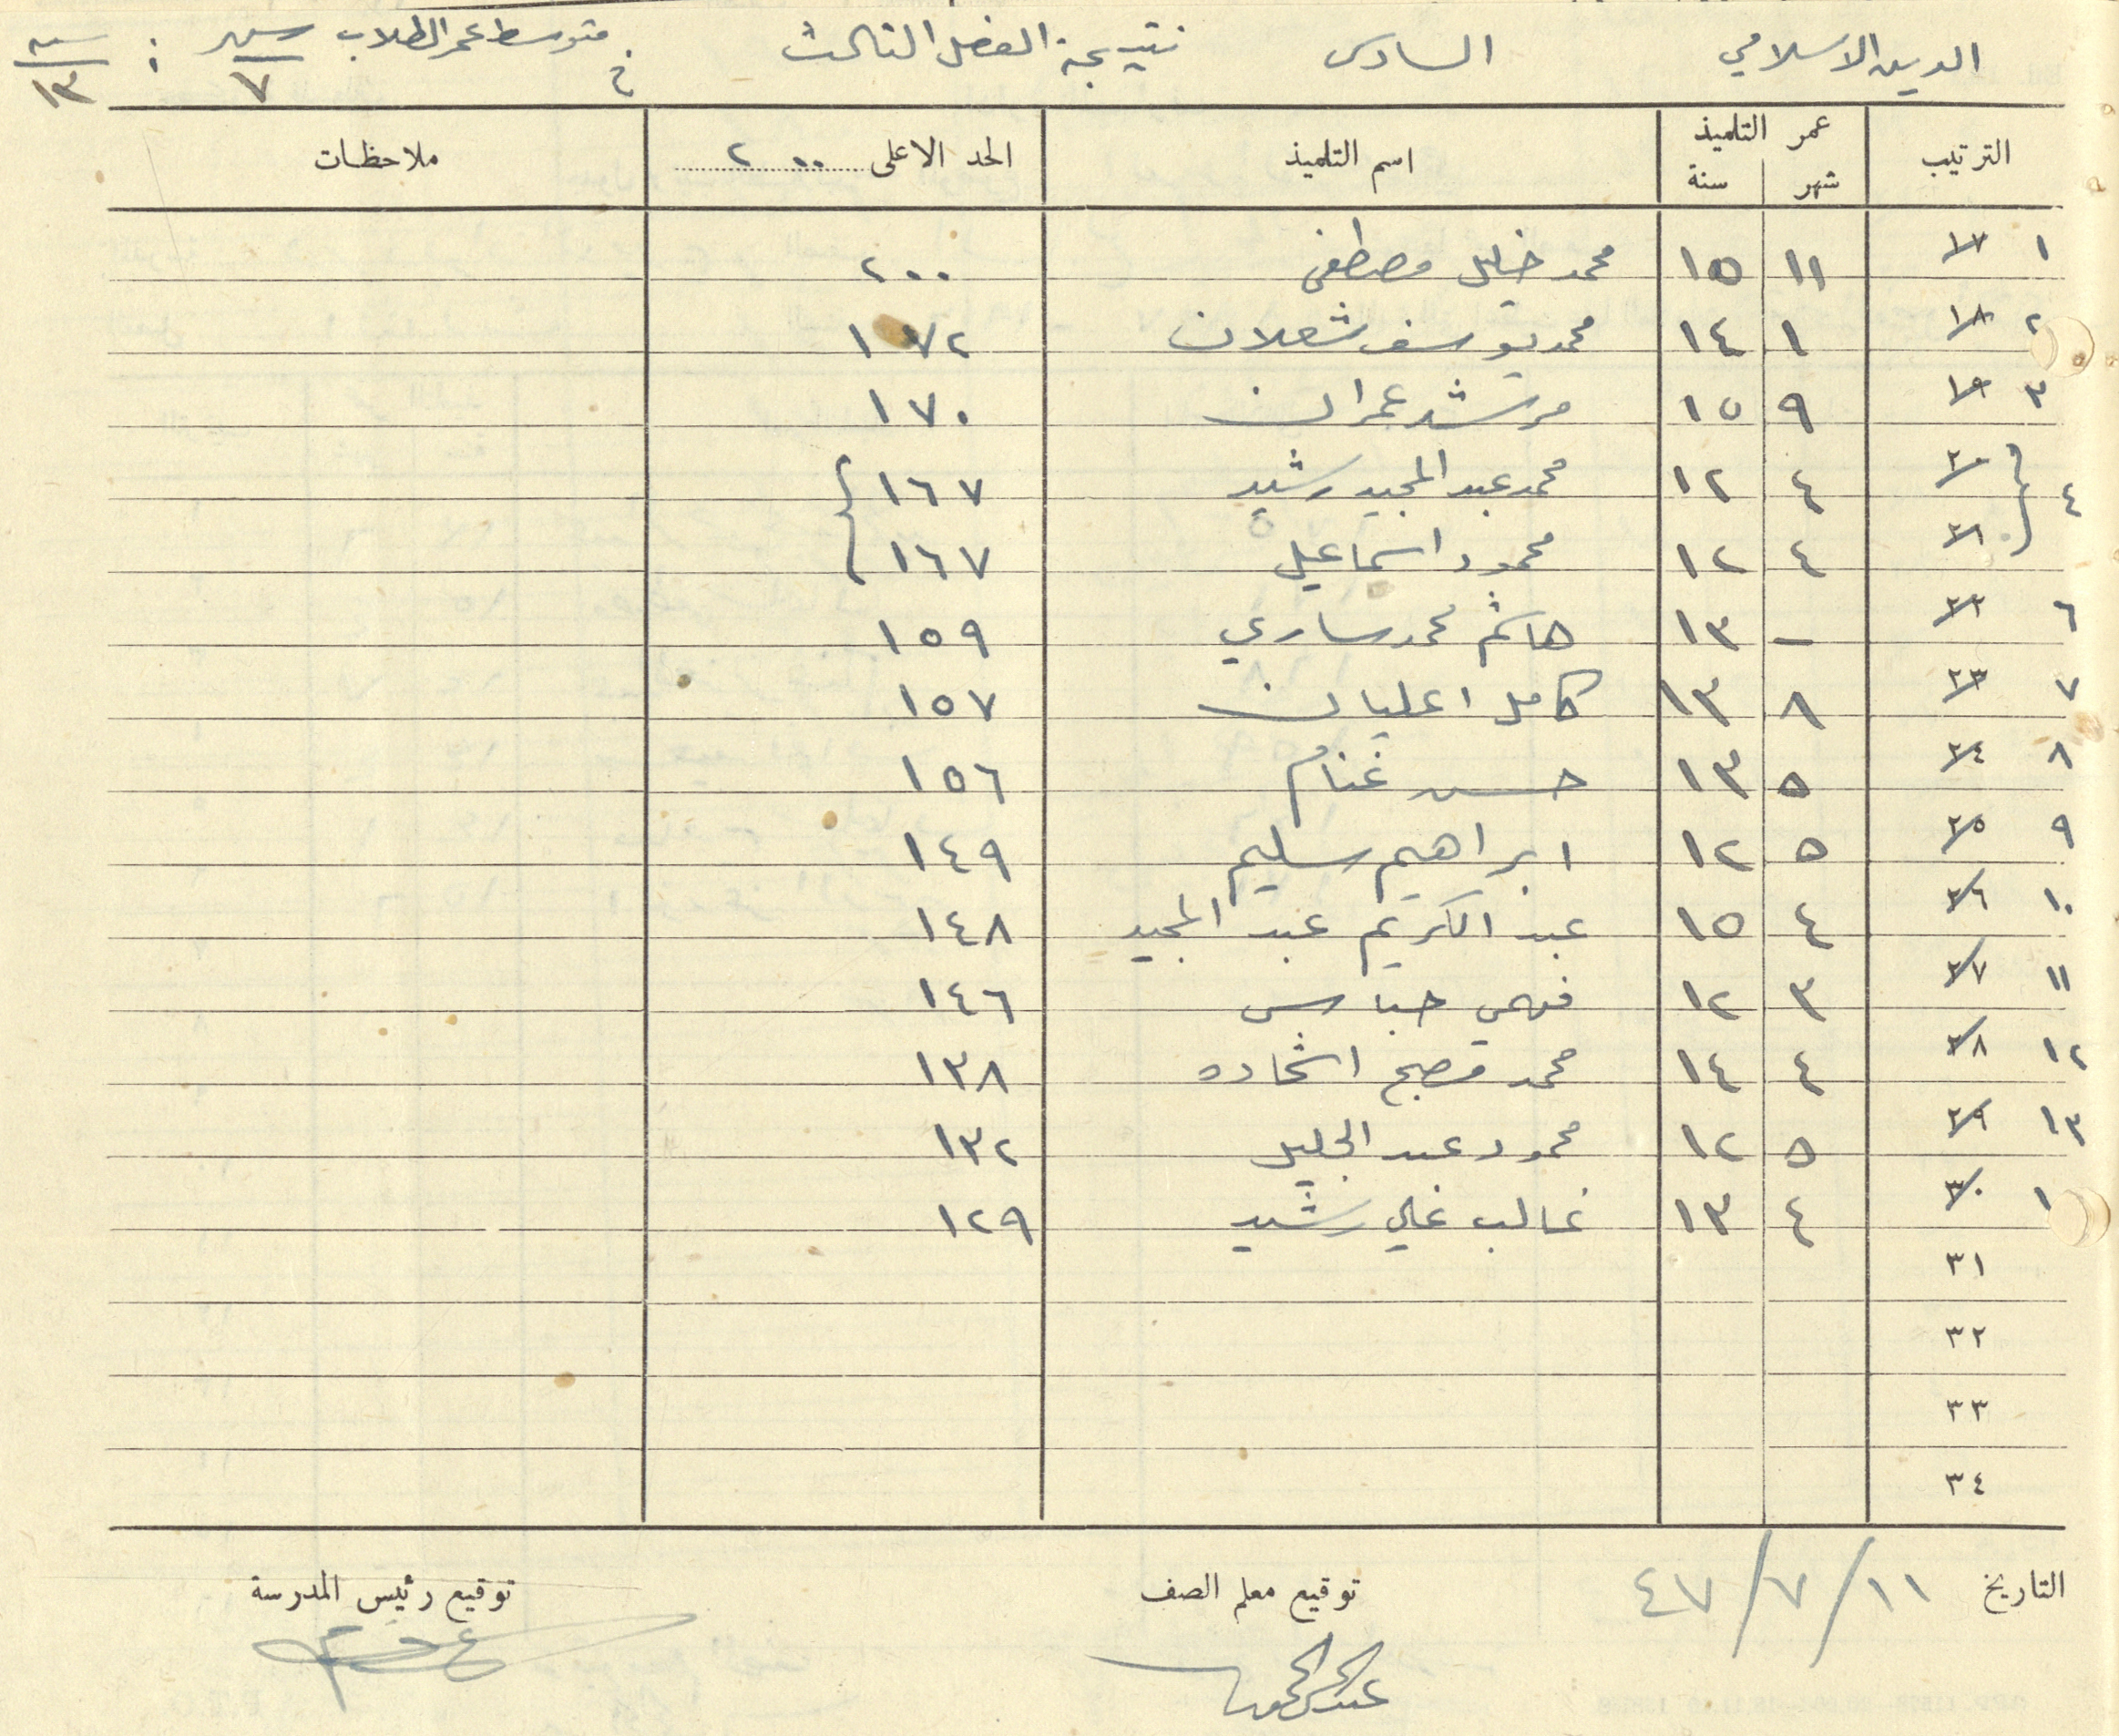 الدين الاسلامي السادس نتيجة الفصل الثالث متوسط عمر الطلاب شهر ٧ : سنه ١٣
الترتيب عمر التلميذ اسم التلميذ الحد الاعلى ٢٠٠ ملاحظات
شهر سنة
١ ١٧ ١١ ١٥ محمد خليل مصطفى ٢٠٠
٢ ١٨ ١ ١٤ محمد يوسف شعلان ١٧٢
٣ ١٩ ٩ ١٥ مرشد عمران ١٧٠
٤ ٢٠ ٤ ١٢ محمد عبد المجيد رشيد ١٦٧
٢١ ٤ ١٢ محمود اسماعيل ١٦٧
٦ ٢٢ - ١٣ هاشم محمد ساري ١٥٩
٧ ٢٣ ٨ ١٣ كامل اعليان ١٥٧
٨ ٢٤ ٥ ١٣ حسن غنام ١٥٦
٩ ٢٥ ٥ ١٢ ابراهيم سليم ١٤٩
١٠ ٢٦ ٤ ١٥ عبد الكريم عبد المجيد ١٤٨
١١ ٢٧ ٣ ١٢ فهمي حباس ١٤٦
١٢ ٢٨ ٤ ١٤ محمد مصبح اشحاده ١٣٨
١٣ ٢٩ ٥ ١٢ محمود عبد الجليل ١٣٢
١ ٣٠ ٤ ١٣ غالب علي رشيد ١٢٩
٣١
٣٢
٣٣
٣٤
التاريخ ١١/٧/٤٧ توقيع معلم الصف توقيع رئيس المدرسة